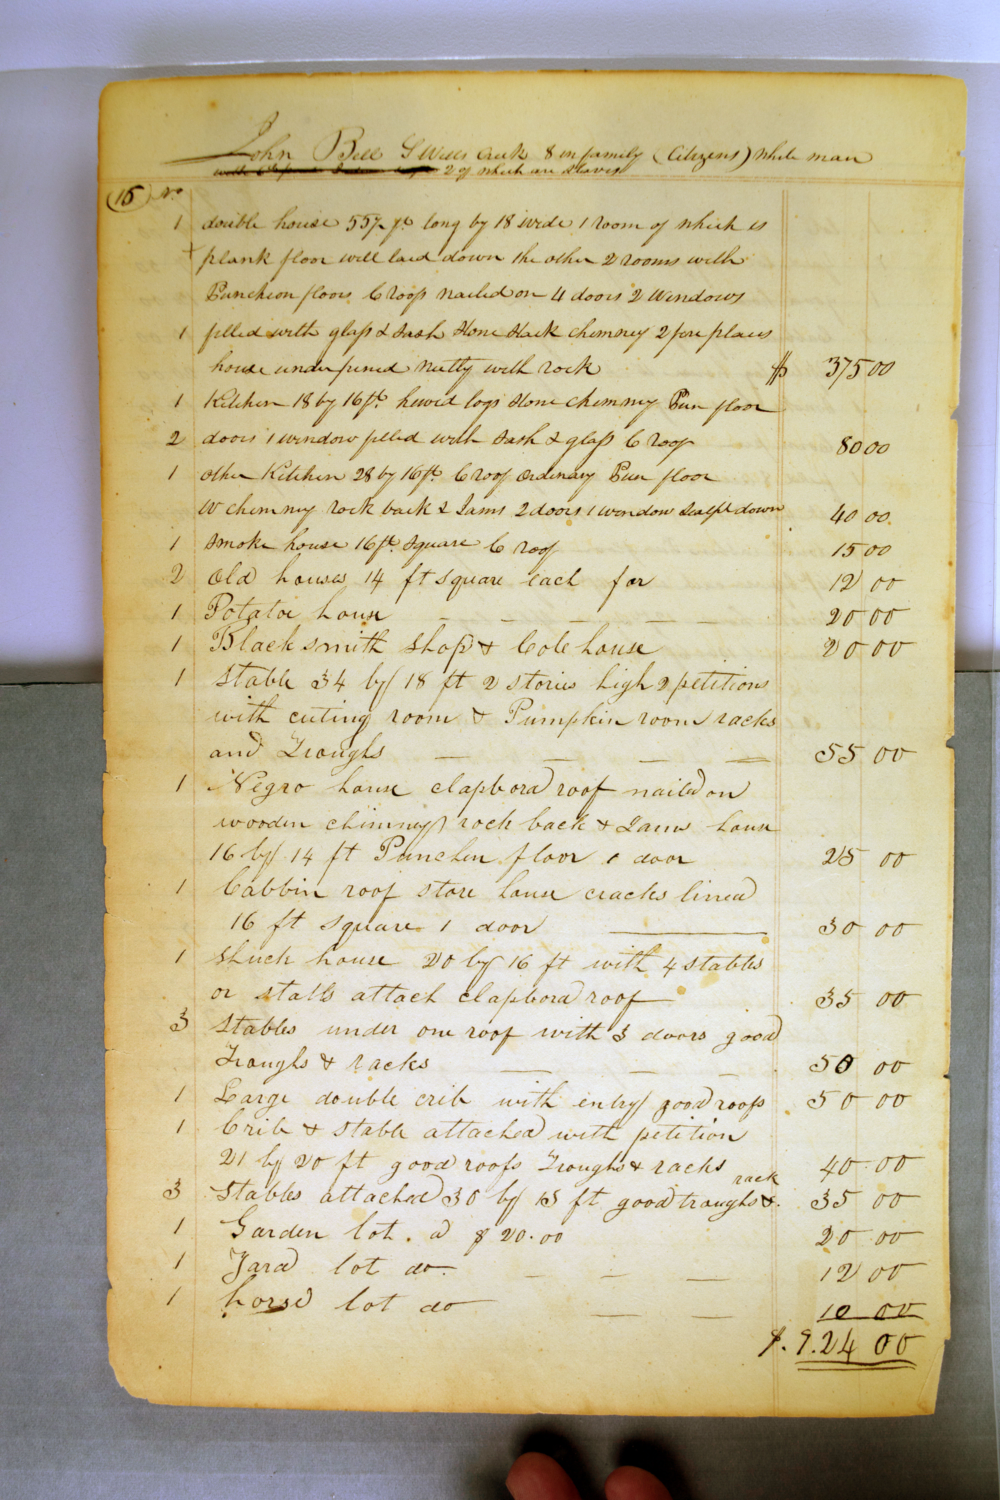 John Bell S Wills Creek 8 in family (Citizens) white man
2 of which are Slaves
15 No
1 double house 55½ ft long by 18 wide 1 room of which is
plank floor well laid down the other 2 rooms with
Puncheon floors C roof nailed on 4 doors 2 Windows
1 filled with glass & sash Stone Stack chimney 2 fire places
house underpined neetly with rock $ 375 00
1 Kitchen 18 by 16 ft. hewed logs stone chimney Pun floor
2 doors 1 window filled with sash & glass C roof 80 00
1 other Kitchen 28 by 16 ft C roof ordinary Pun floor
W chimney rock back & Jams 2 doors 1 window Scalpt down 40 00
1 Smoke house 16 ft. Square C roof 15 00
2 Old houses 14 ft square each for 12 00
1 Potatoe house 20 00
1 Blacksmith shop & Cole house 20 00
1 Stable 34 by 18 ft 2 stories high 2 petitions
with cuting room & Pumpkin room racks
and Troughs 55 00
1 Negro house clapbord roof nailed on
wooden chimney rock back & Jams house
16 by 14 ft Punchin floor 1 door 25 00
1 Cabbin roof store house cracks lined
16 ft square 1 door 30 00
1 Shuck house 20 by 16 ft with 4 stables
or stalls attach clapbord roof 35 00
3 Stables under one roof with 3 doors good
Troughs & racks 50 00
1 Large double crib with entry good roofs 50 00
1 Crib & stable attached with petition
21 by 20 ft good roofs Troughs & racks 40 00
3 Stables attached 30 by 15 ft good traughs & rack 35 00
1 Garden lot. a $ 20.00 20 00
1 Yard lot do. 12 00
1 horse lot do 10 00
$. 9.24 00